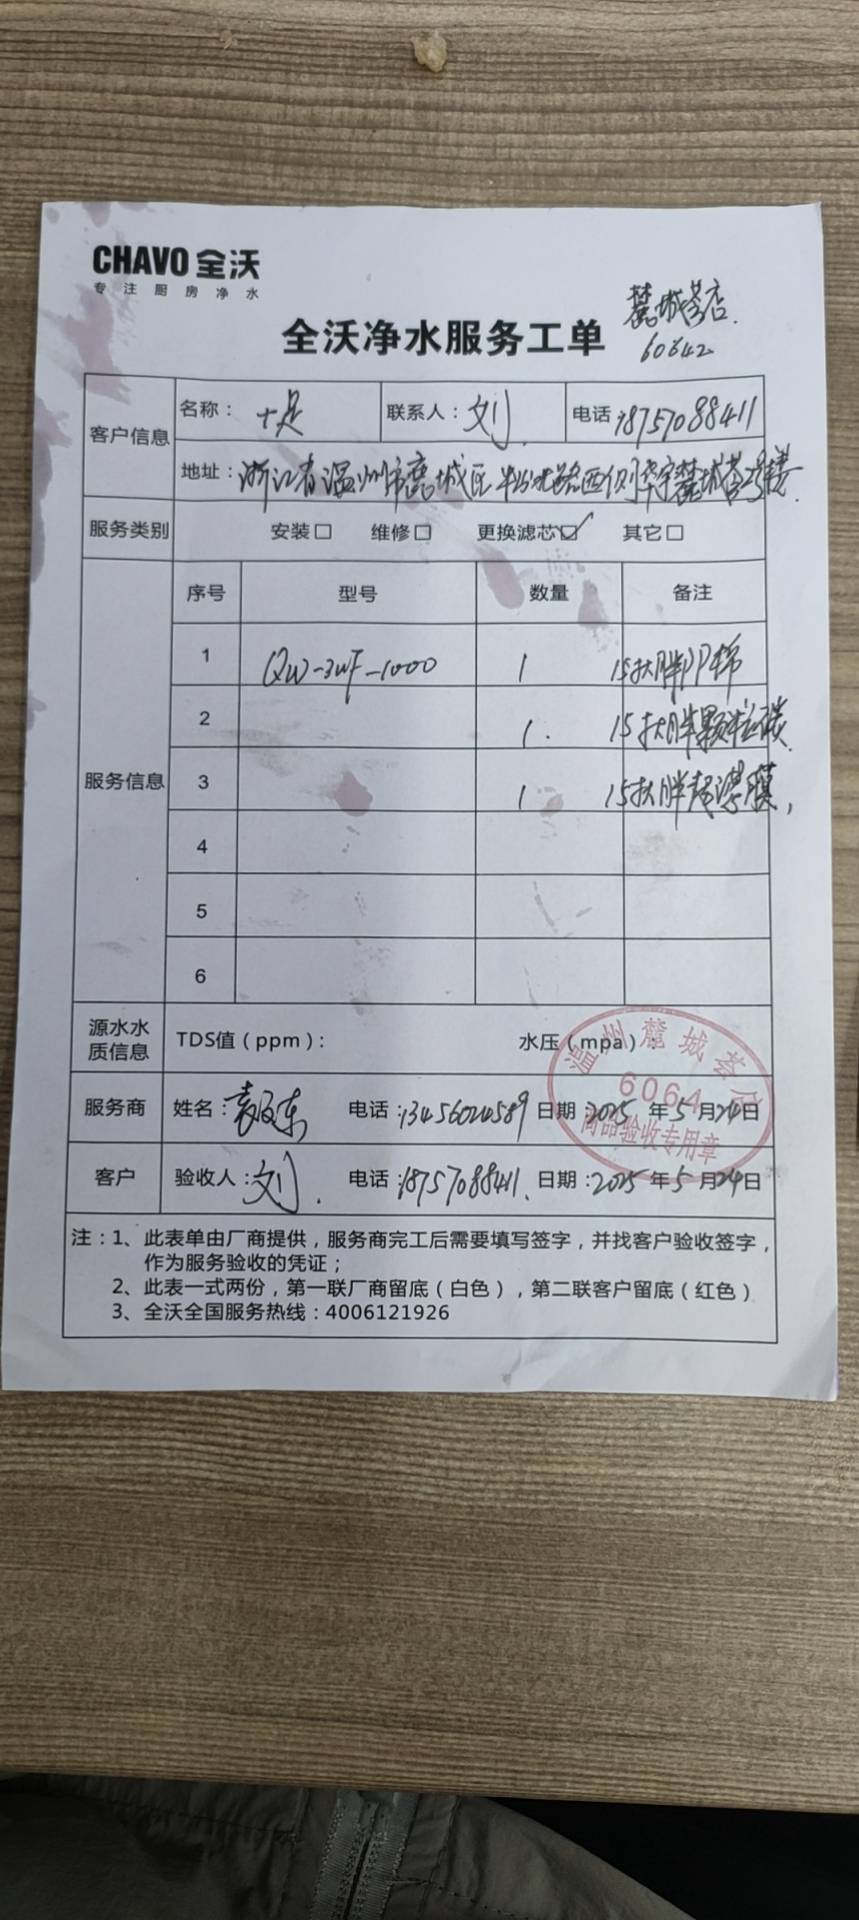 CHAVO 全沃
专注厨房净水
麓城荟店
全沃净水服务工单
60642
客户信息
名称： 联系人：刘 电话：18757088411
地址：浙江省温州市鹿城区 路西侧华宇麓城荟2号楼
服务类别 安装□ 维修□ 更换滤芯☑ 其它□
服务信息
序号 型号 数量 备注
1 QW-3WF-1000 1 15寸大胖PP棉
2 1. 15寸大胖颗粒碳
3 1 15寸大胖超滤膜
4
5
6
源水水质信息 TDS值（ppm）： 水压（mpa）：
温州麓城荟店
6064
商品验收专用章
服务商 姓名： 电话：13456024589 日期 2025 年 5 月 24 日
客户 验收人：刘. 电话：18757088411. 日期：2025 年 5 月 24 日
注：1、此表单由厂商提供，服务商完工后需要填写签字，并找客户验收签字，
作为服务验收的凭证；
2、此表一式两份，第一联厂商留底（白色），第二联客户留底（红色）
3、全沃全国服务热线：4006121926